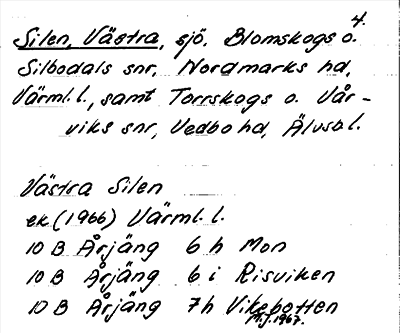 4.
Silen, Västra, sjö, Blomskogs o.
Silbodals snr, Nordmarks hd,
Värml. l., samt Torrskogs o. Vår-
viks snr, Vedbo hd, Älvsb. l.
Västra Silen
ek (1966) Värml. l.
10 B Årjäng 6 h Mon
10 B Årjäng 6 i Risviken
10 B Årjäng 7h Vikebotten
M.J. 1967.